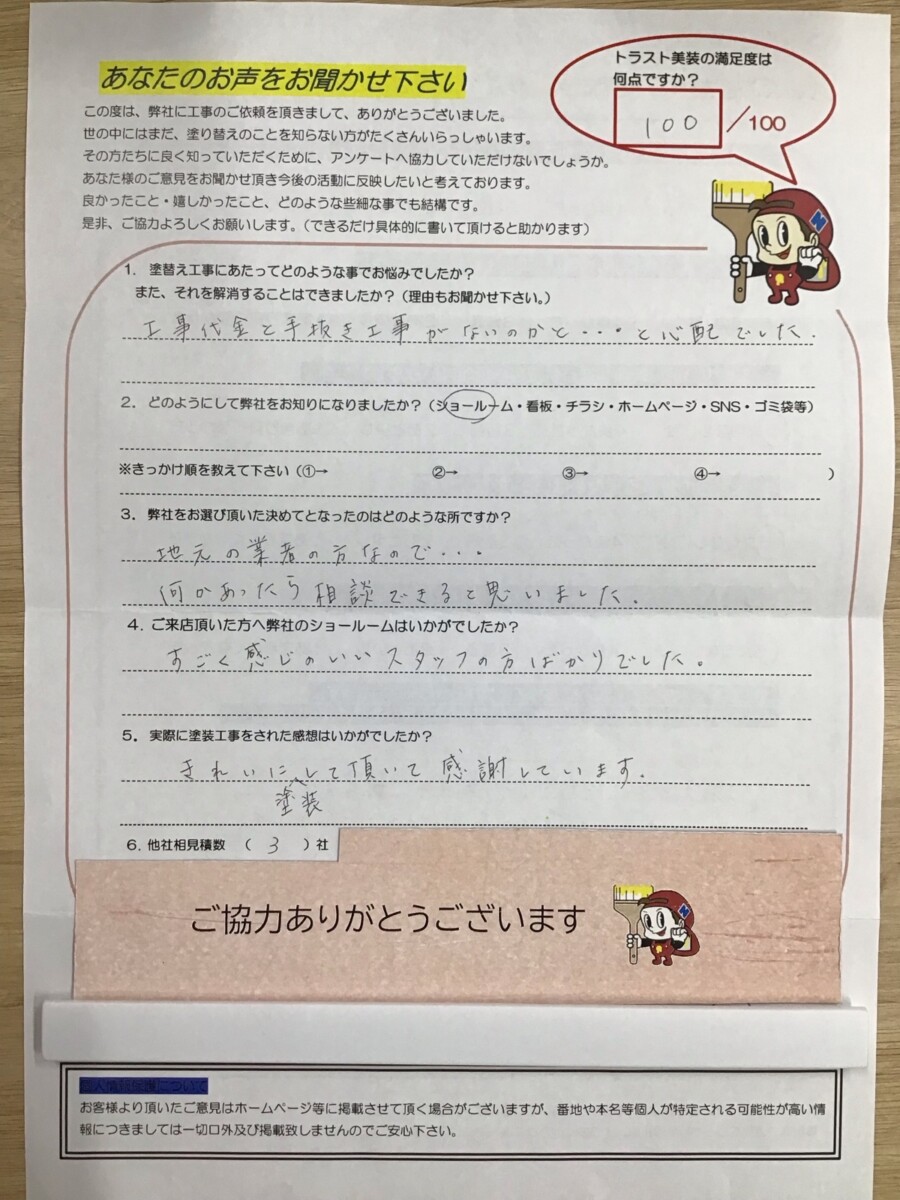 あなたのお声をお聞かせ下さい
トラスト美装の満足度は
何点ですか？
100／100
この度は、弊社に工事のご依頼を頂きまして、ありがとうございました。
世の中にはまだ、塗り替えのことを知らない方がたくさんいらっしゃいます。
その方たちに良く知っていただくために、アンケートへ協力していただけないでしょうか。
あなた様のご意見をお聞かせ頂き今後の活動に反映したいと考えております。
良かったこと・嬉しかったこと、どのような些細な事でも結構です。
是非、ご協力よろしくお願いします。（できるだけ具体的に書いて頂けると助かります）
1．塗替え工事にあたってどのような事でお悩みでしたか？
また、それを解消することはできましたか？（理由もお聞かせ下さい。）
工事代金と手抜き工事がないのかと・・・と心配でした．
2．どのようにして弊社をお知りになりましたか？（ショールーム・看板・チラシ・ホームページ・SNS・ゴミ袋等）
※きっかけ順を教えて下さい（①→ ②→ ③→ ④→ ）
3．弊社をお選び頂いた決めてとなったのはどのような所ですか？
地元の業者の方なので・・・
何かあったら相談できると思いました．
4．ご来店頂いた方へ弊社のショールームはいかがでしたか？
すごく感じのいいスタッフの方ばかりでした。
5．実際に塗装工事をされた感想はいかがでしたか？
きれいに塗装して頂いて感謝しています．
6．他社相見積数 （ 3 ）社
ご協力ありがとうございます
個人情報保護について
お客様より頂いたご意見はホームページ等に掲載させて頂く場合がございますが、番地や本名等個人が特定される可能性が高い情
報につきましては一切口外及び掲載致しませんのでご安心下さい。